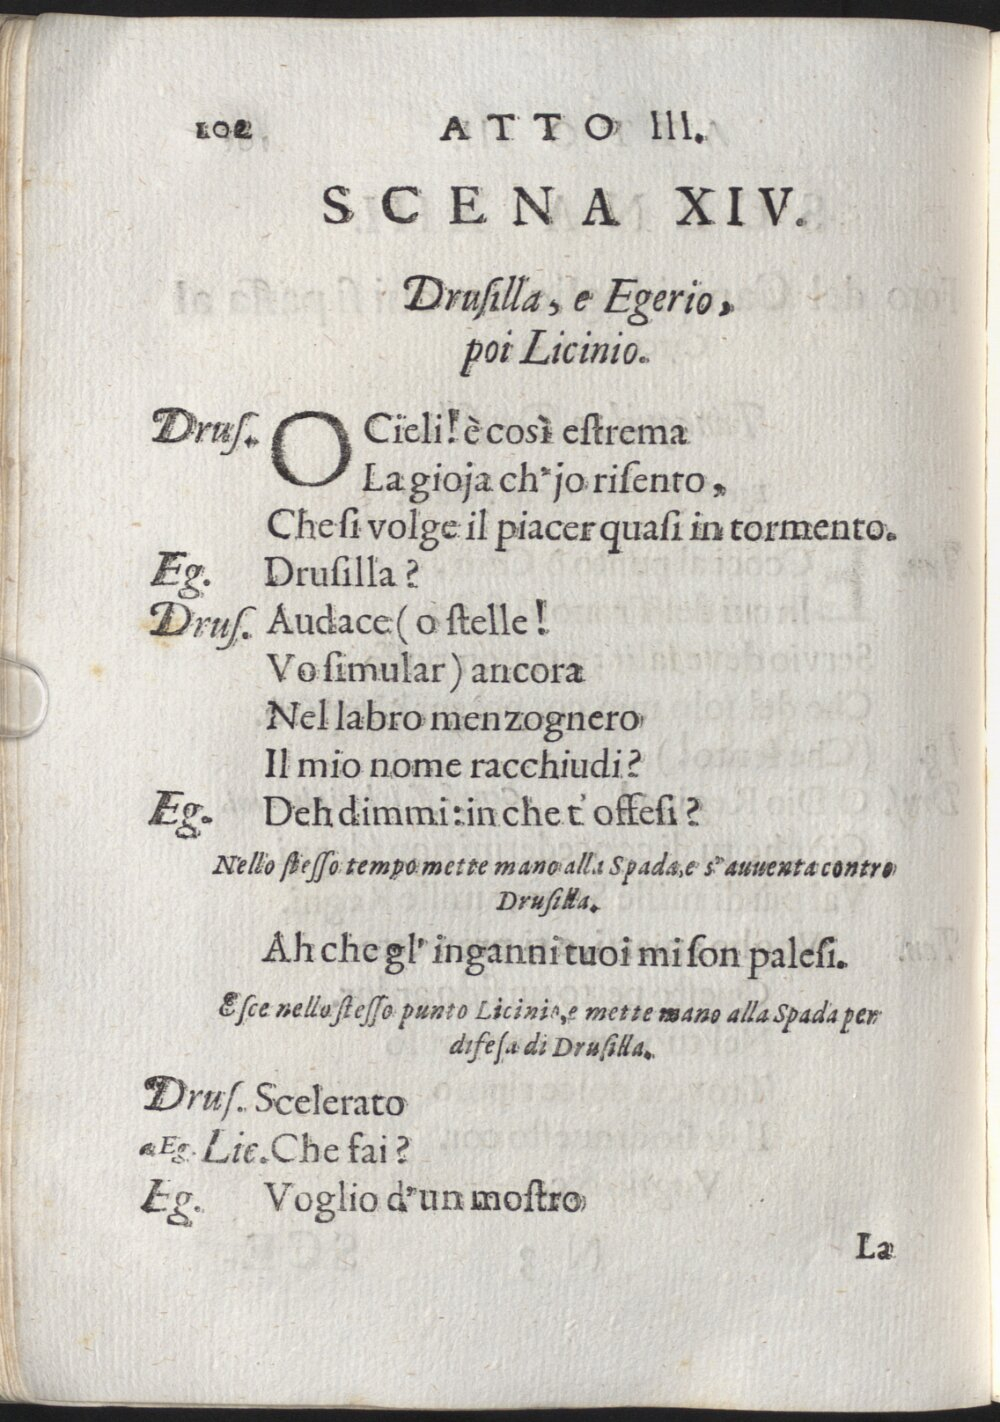 102 ATTO III.
SCENA XIV.
Druſilla, e Egerio,
poi Licinio.
Druſ. O Cieli! è così eſtrema
La gioja ch'jo riſento,
Che ſi volge il piacer quaſi in tormento.
Eg. Druſilla?
Druſ. Audace (o ſtelle!
Vo ſimular) ancora
Nel labro menzognero
Il mio nome racchiudi?
Eg. Deh dimmi: in che t' offeſi?
Nello ſteſſo tempo mette mano alla Spada, e s'auuenta contro
Druſilla.
Ah che gl' inganni tuoi mi ſon paleſi.
Eſce nello ſteſſo punto Licinio, e mette mano alla Spada per
difeſa di Druſilla.
Druſ. Scelerato
a Eg. Lic. Che fai?
Eg. Voglio d'un moſtro
La